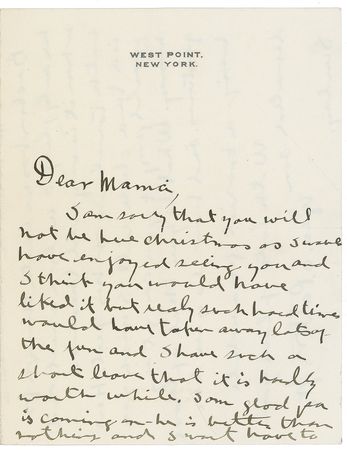 WEST POINT.
NEW YORK.
Dear Mama,
I am sorry that you will
not be here christmas as I would
have enjoyed seeing you and
I think you would have
liked it but realy such hard times
would have taken away lots of
the fun and I have such a
short leave that it is hardly
worth while. I am glad pa
is coming on he is better than
nothing and I wont have to